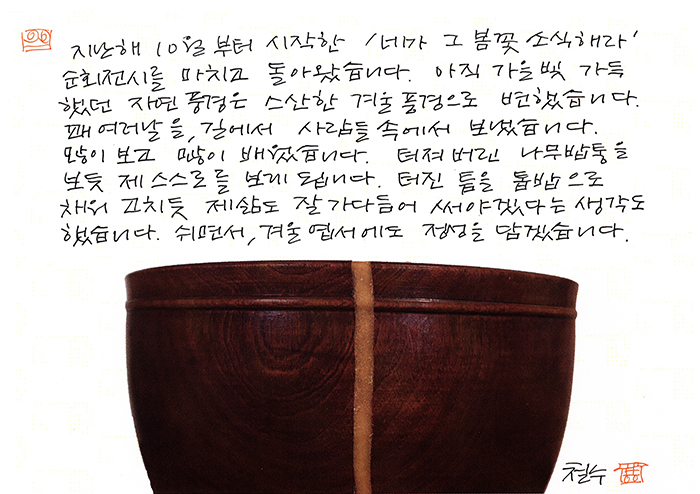 지난해 10월부터 시작한 '네가 그 봄꽃 소식해라'
순회전시를 마치고 돌아왔습니다. 아직 가을빛 가득
했던 자연 풍경은 스산한 겨울 풍경으로 변했습니다.
꽤 여러날을, 길에서 사람들 속에서 보냈습니다.
많이 보고 많이 배웠습니다. 터져버린 나무밥통을
보듯 제 스스로를 보게 됩니다. 터진 틈을 톱밥으로
채워 고치듯 제 삶도 잘 가다듬어 써야겠다는 생각도
했습니다. 쉬면서, 겨울 엽서에도 정성을 담겠습니다.
철수